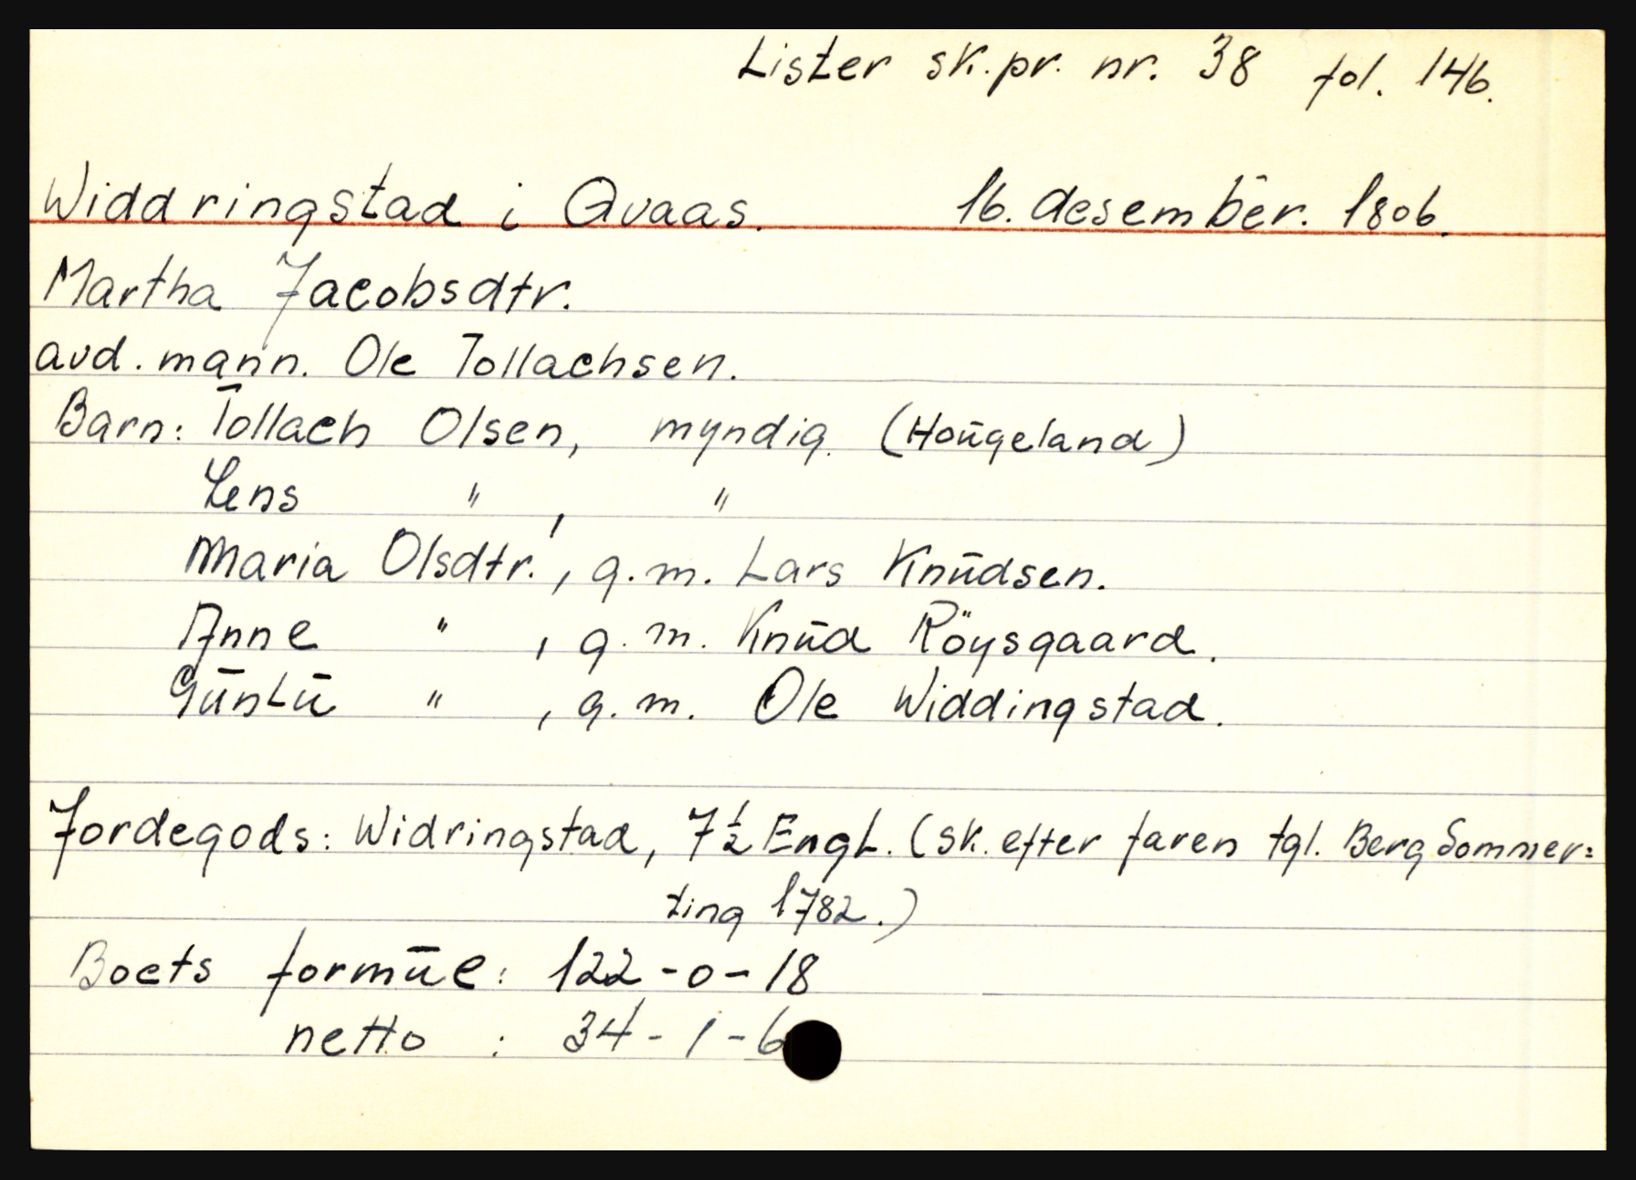 Lister sk.pr. nr. 38 fol. 146.
Widdringstad i Qvaas. 16. desember. 1806.
Martha Jacobsdtr.
avd. mann. Ole Tollachsen.
Barn: Tollach Olsen, myndig. (Hougeland)
Lens " , "
Maria Olsdtr., g.m. Lars Knudsen.
Anne " , g.m. Knud Röysgaard.
Guntu " , g.m. Ole Widdingstad.
Jordegods: Widringstad, 7½ Engl. (sk. efter faren tgl. Berg Sommer=
ting 1782.)
Boets formue: 122-0-18
netto : 34-1-6